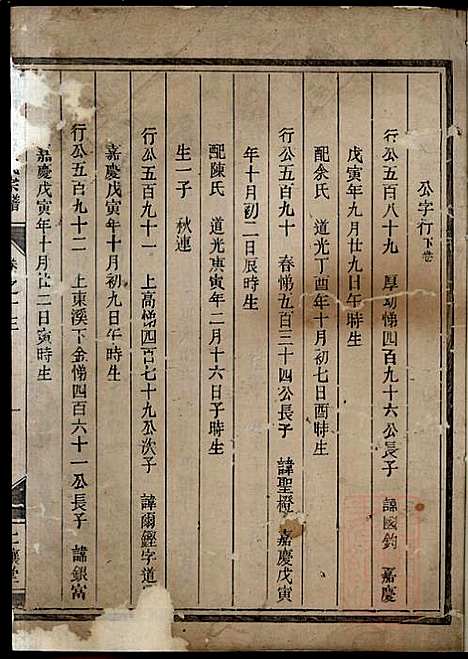 公字行下卷
行公五百八十九 厚坳悌四百九十六公長子 諱國鈞 嘉慶
戊寅年九月廿九日午時生
配余氏 道光丁酉年十月初七日酉時生
行公五百九十 春悌五百三十四公長子 諱聖橙 嘉慶戊寅
年十月初二日辰時生
配陳氏 道光庚寅年二月十六日子時生
生一子 秋連
行公五百九十一 上高悌四百七十九公次子 諱爾鏗字道
嘉慶戊寅年十月初九日午時生
行公五百九十二 上東溪下金悌四百六十一公長子 諱銀富
嘉慶戊寅年十月廿二日寅時生
宗譜
卷之十三